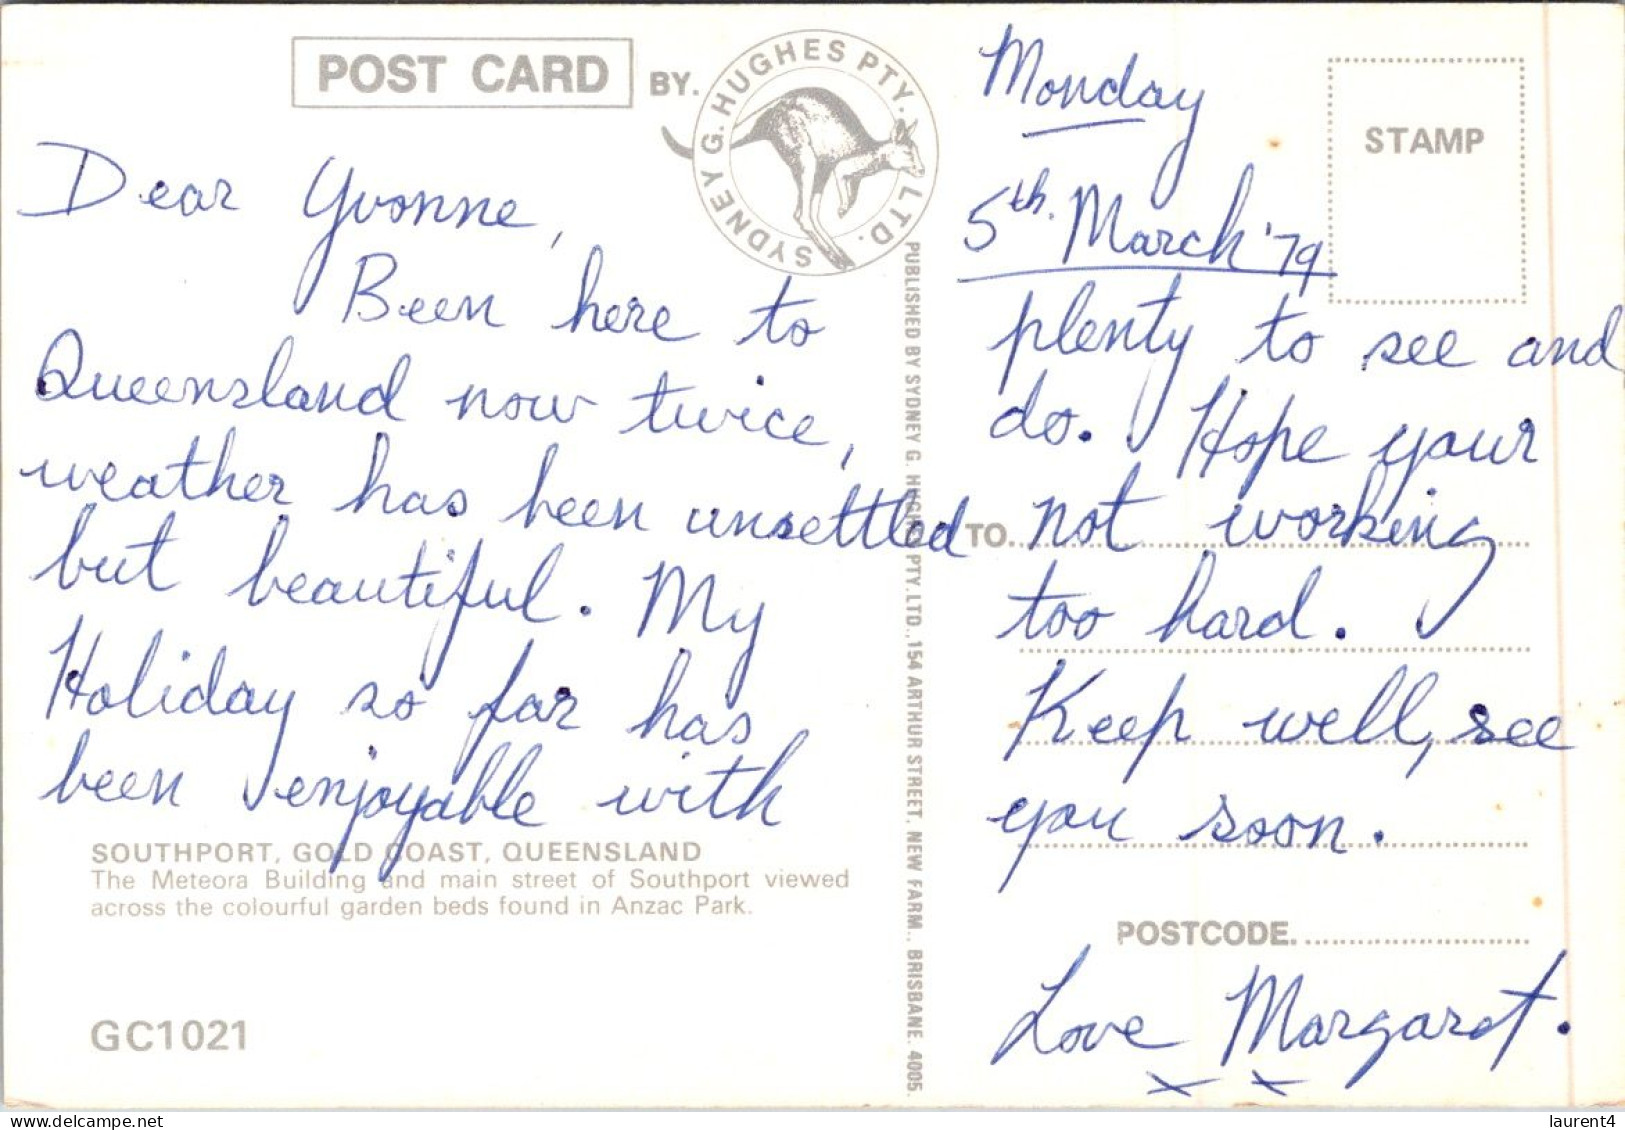 POST CARD BY.
SYDNEY G. HUGHES PTY. LTD.
Dear Yvonne,
Been here to
Queensland now twice,
weather has been unsettled
but beautiful. My
Holiday so far has
been enjoyable with
SOUTHPORT, GOLD COAST, QUEENSLAND
The Meteora Building and main street of Southport viewed
across the colourful garden beds found in Anzac Park.
GC1021
PUBLISHED BY SYDNEY G. HUGHES PTY. LTD., 154 ARTHUR STREET, NEW FARM., BRISBANE. 4005.
Monday
5th. March '79
STAMP
plenty to see and
do. Hope your
TO. not working
too hard.
Keep well, see
you soon.
POSTCODE.
Love Margaret.
x x
laurent4